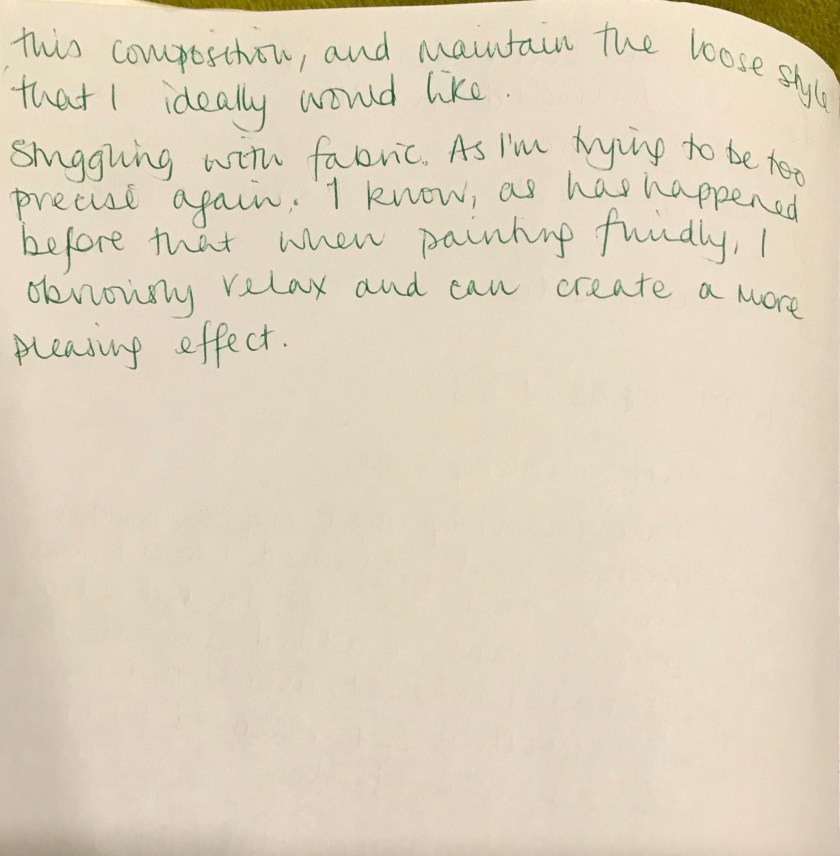 this composition, and maintain the loose style
that I ideally would like.
Struggling with fabric. As I'm trying to be too
precise again. I know, as has happened
before that when painting fluidly, I
obviously relax and can create a more
pleasing effect.